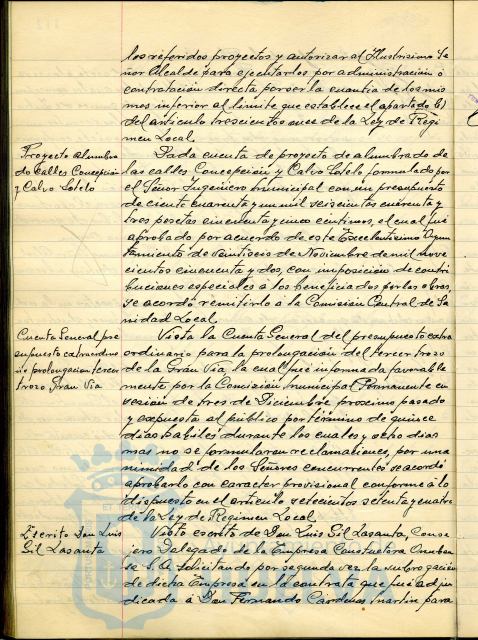 los referidos proyectos y autorizar al Ilustrisimo Se
ñor Alcalde para ejecutarlos por administración ó
contratación directa por ser la cuantia de los mis
mos inferior al limite que establece el apartado b)
del articulo trescientos once de la Ley de Regi
men Local.
Proyecto alumbra
do calles Concepción
y Calvo Sotelo
Dada cuenta de proyecto de alumbrado de
las calles Concepción y Calvo Sotelo formulado por
el Señor Ingeniero municipal con un presupuesto
de ciento cuarenta y un mil seiscientas cuarenta y
tres pesetas cincuenta y cinco céntimos, el cual fué
aprobado por acuerdo de este Excelentisimo Ayun
tamiento de veintiseis de Noviembre de mil nove
cientos cincuenta y dos, con imposición de contri
buciones especiales á los beneficiados por las obras,
se acordó remitirlo á la Comisión Central de Sa
nidad Local.
Cuenta General pre
supuesto extraordina
rio prolongación tercer
trozo Gran Via
Vista la Cuenta General del presupuesto extra
ordinario para la prolongación del tercer trozo
de la Gran Via, la cual fué informada favorable
mente por la Comisión municipal Permanente en
sesión de tres de Diciembre proximo pasado
y expuesta al público por término de quince
dias habiles durante los cuales y ocho dias
mas no se formularon reclamaciones, por una
nimidad de los Señores concurrentes se acordó
aprobarla con caracter provisional conforme á lo
dispuesto en el articulo setecientos setenta y cuatro
de la Ley de Regimen Local.
Escrito Don Luis
Gil Lasanta
Visto escrito de Don Luis Gil Lasanta, Conse
jero Delegado de la Empresa Constructora Onuben
se S.A. solicitando por segunda vez la subrogación
de dicha Empresa en la contrata que fué adju
dicada á Don Fernando Cárdenas Martin para